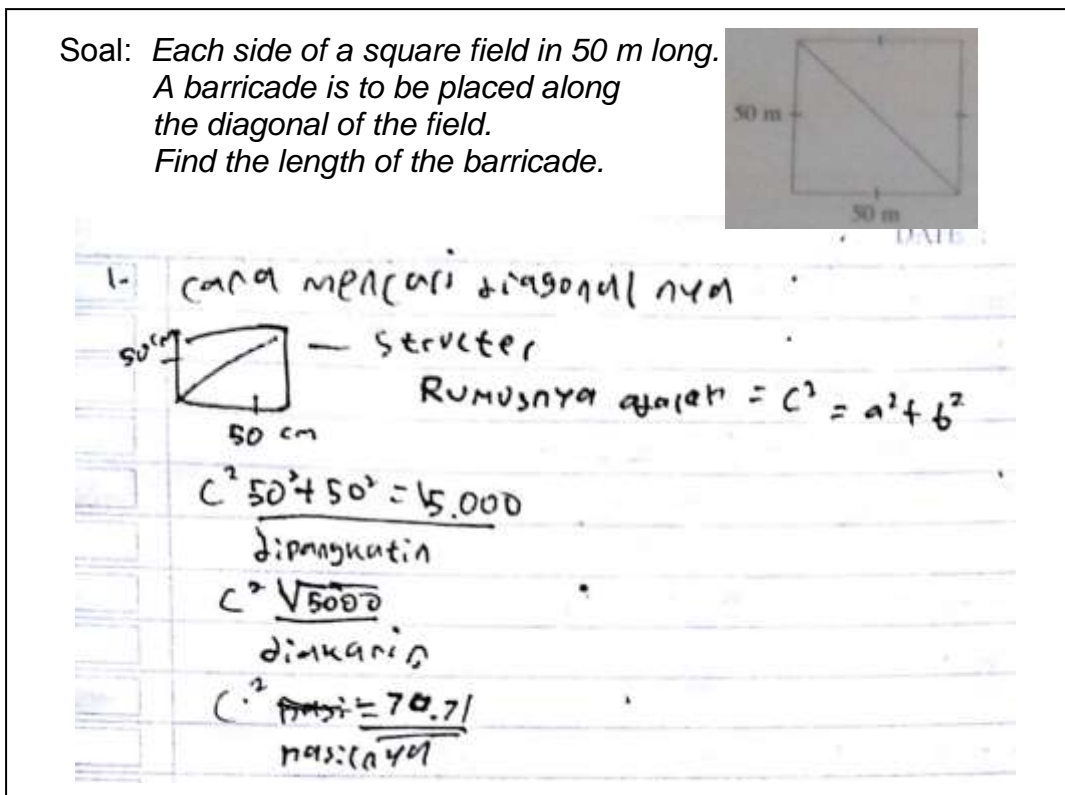 Soal: Each side of a square field in 50 m long.
A barricade is to be placed along
the diagonal of the field.
Find the length of the barricade.
50 m
50 m
DATE :
1. cara mencari diagonal nya
50 cm
structer
Rumusnya adalah = C² = a² + b²
50 cm
C² 50² + 50² = 5.000
dipangkatin
C² √5000
diakarin
C.² = 70.71
hasilnya